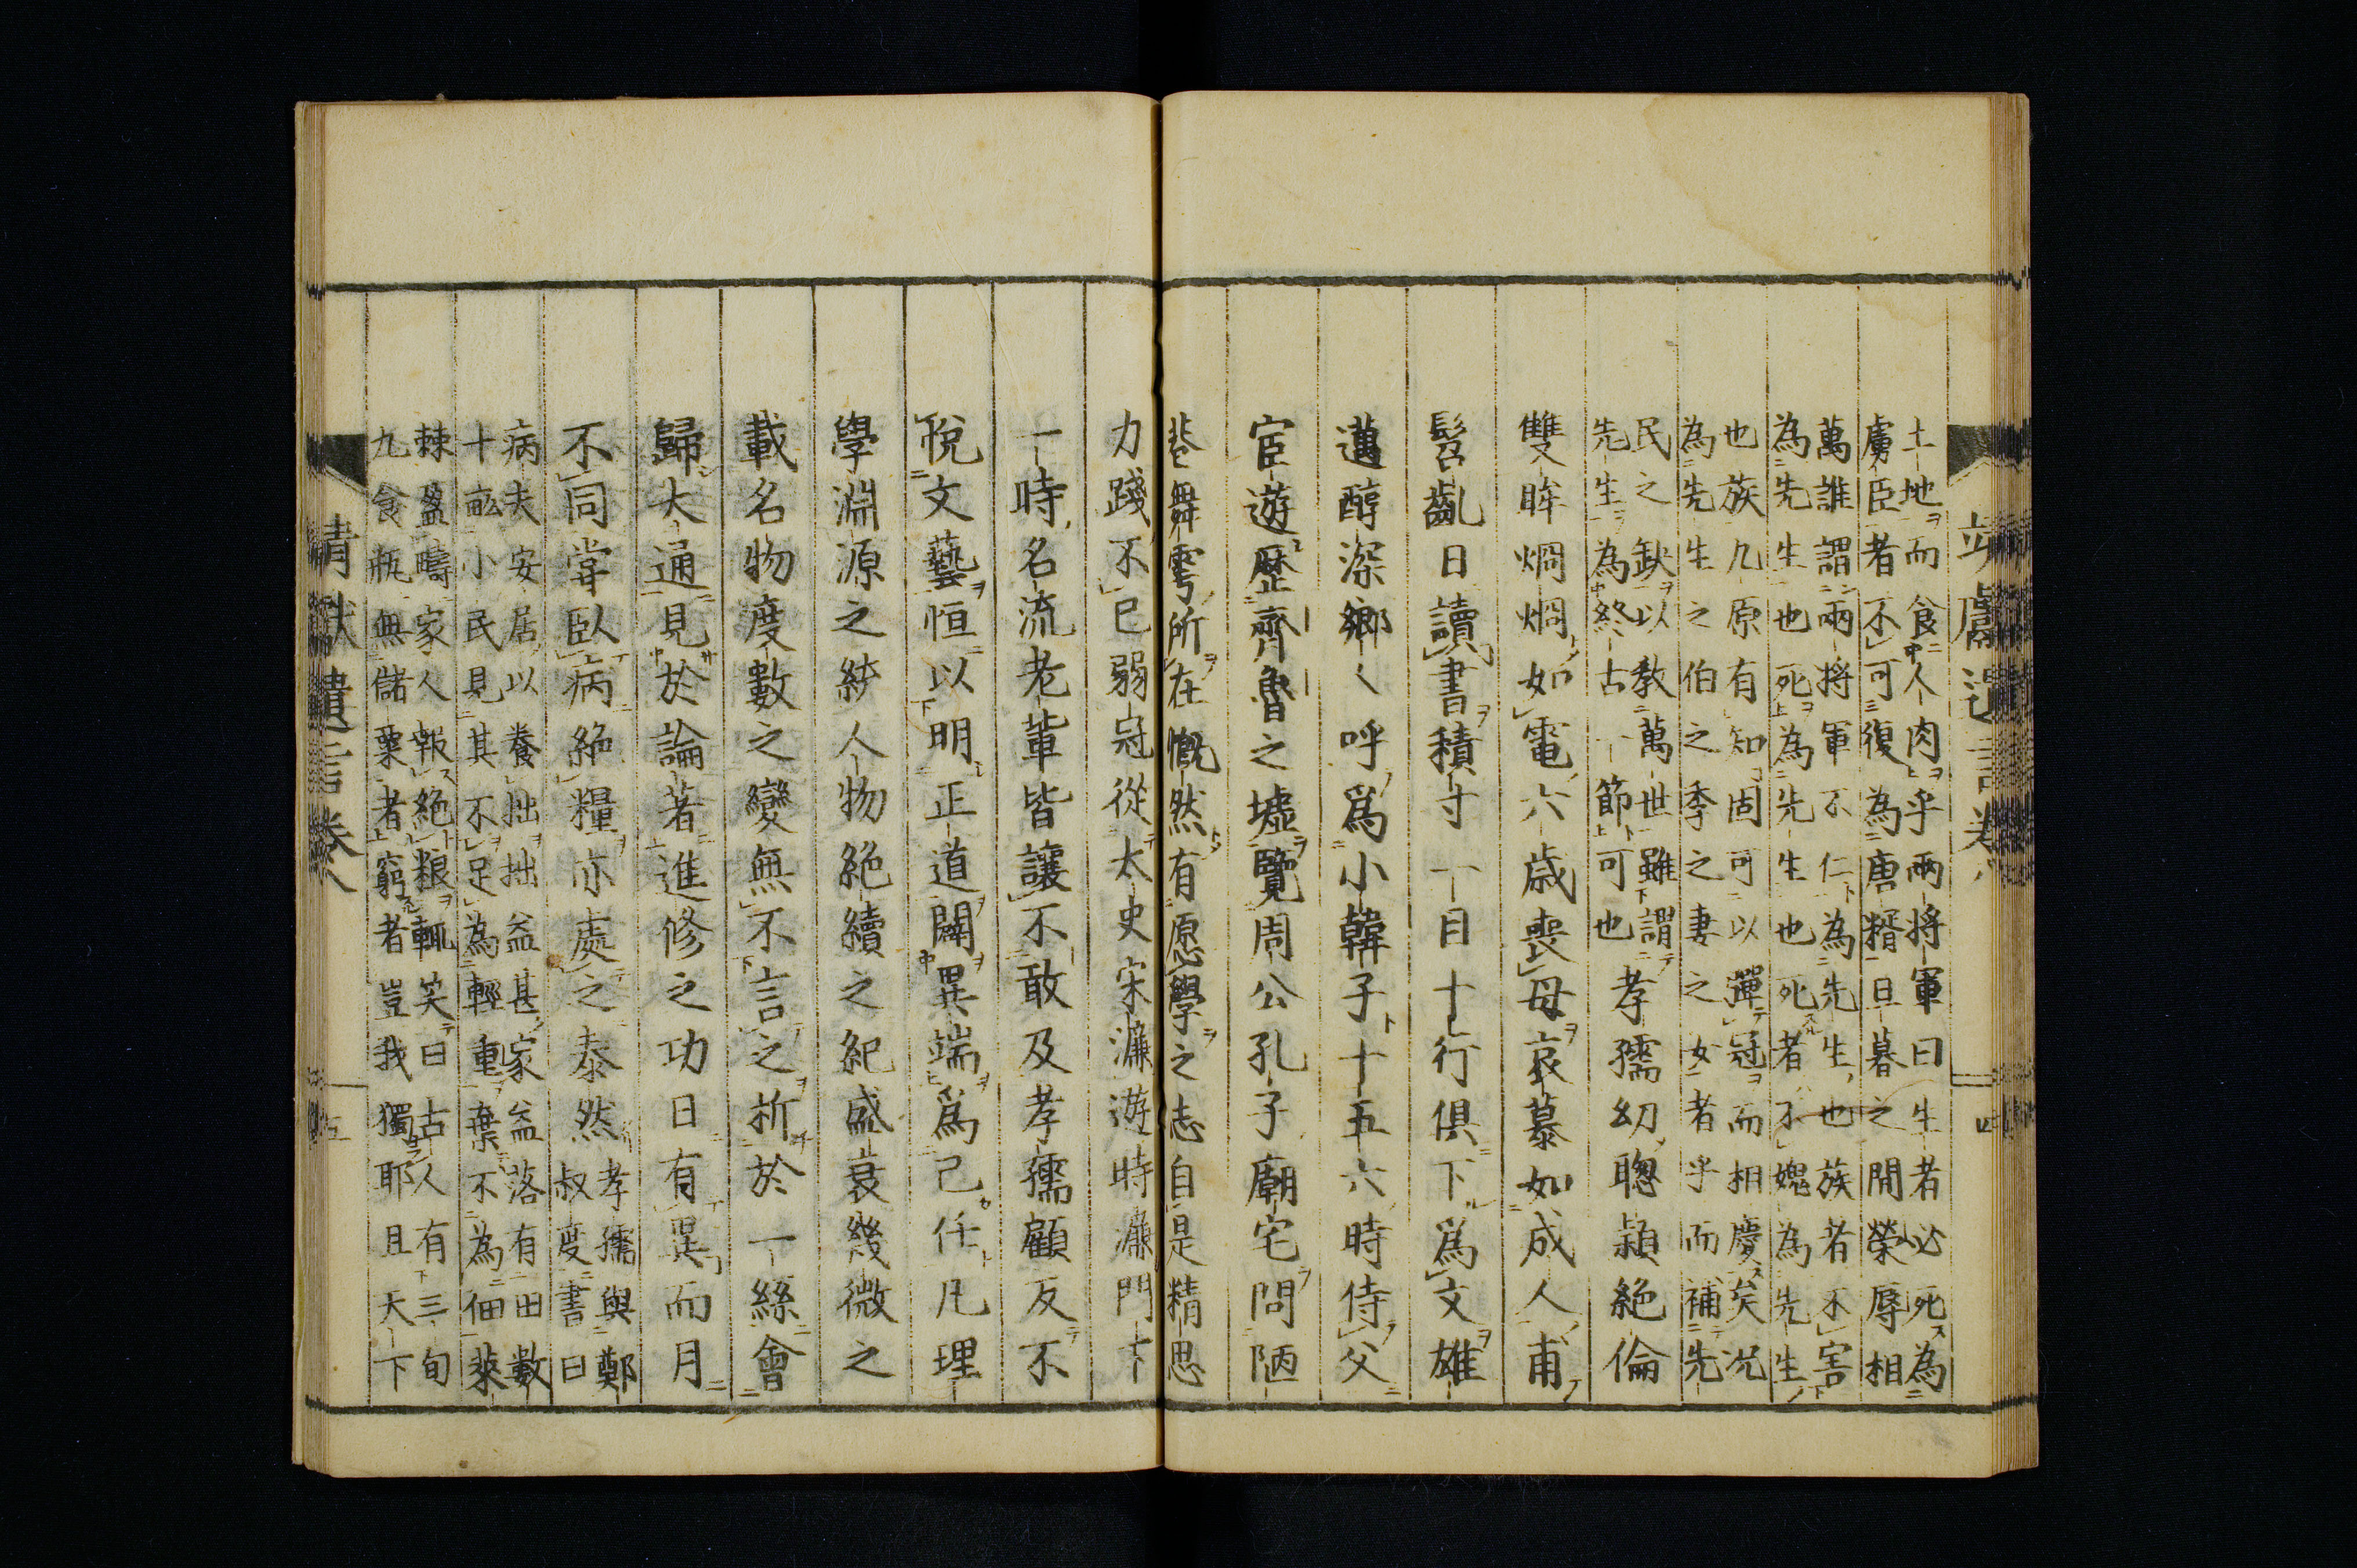 土地而食人肉乎兩將軍曰生者必死為
虜臣者不可復為唐猾旦暮之閒榮辱相
萬誰謂兩將軍不仁為先生也族者不害
為先生也死為先生也死者不媿為先生
也族九原有知固可以彈冠而相慶矣况
為先生之伯之季之妻之女者乎而補先
民之缺以教萬世雖謂
先生為終古一節可也
孝孺幼聰頴絶倫
雙眸烱烱如電六歳喪母哀慕如成人甫
髫齓日讀書積寸一目十行俱下爲文雄
邁醇深鄉〱呼爲小韓子十五六時侍父
宦遊歷齊魯之墟覽周公孔子廟宅問陋
巷舞雩所在慨然有愿學之志自是精思
力踐不已弱冠從太史宋濂遊時濂門下
一時名流老輩皆讓不敢及孝孺顧反不
悅文藝恒以明正道闢異端爲己任凡理
學淵源之統人物絶續之紀盛衰幾微之
載名物度數之變無不言之折於一絲會
歸大通見於論著進修之功日有異而月
不同甞臥病絶糧亦處之泰然
孝孺與鄭
叔度書曰
病夫安居以養拙拙益甚家益落有田數
十畝小民見其不足為輕重棄不為佃萊
棘盈疇家人報絶粮輒笑曰古人有三旬
九食瓶無儲粟者窮者豈我獨耶且天下
靖獻遺言卷
四
靖獻遺言卷八
五